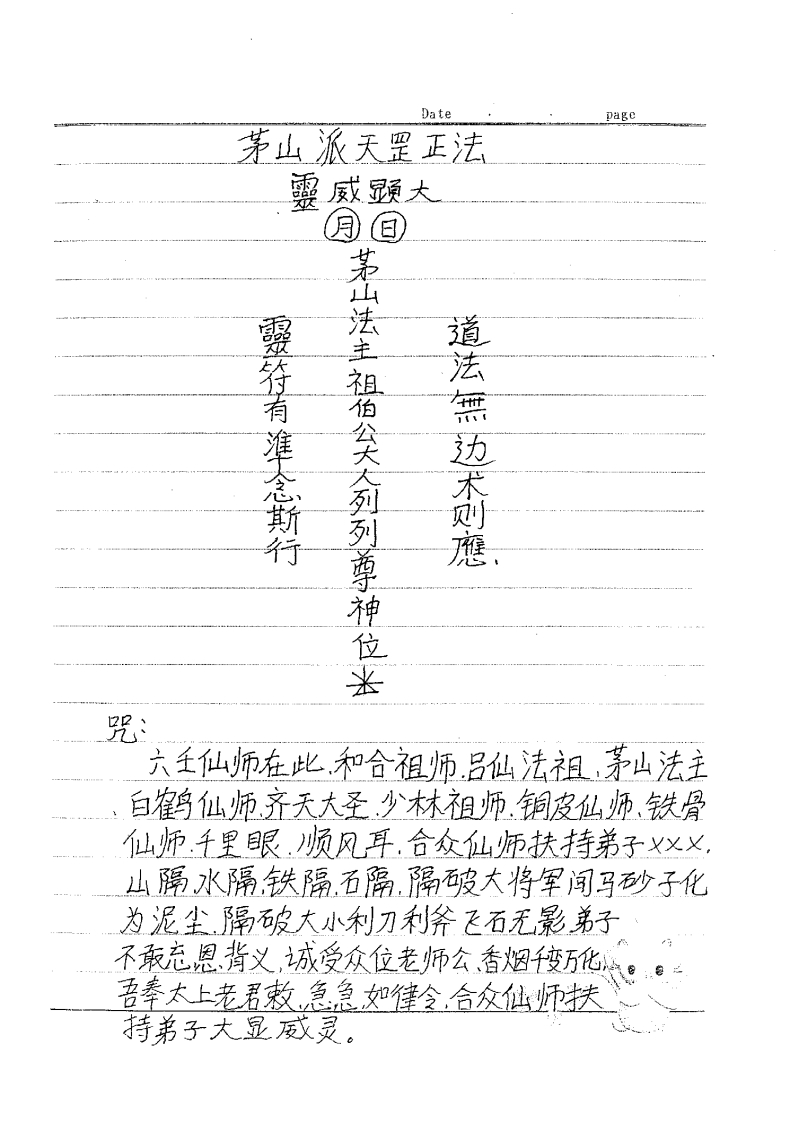 Date . . page
茅山派天罡正法
靈威顯大
月 日
道法無边术则應、
茅山法主祖伯公大人列列尊神位
靈符有準念斯行
咒：
六壬仙师在此、和合祖师、吕仙法祖、茅山法主
、白鹤仙师、齐天大圣、少林祖师、铜皮仙师、铁骨
仙师、千里眼、顺风耳、合众仙师扶持弟子×××、
山隔、水隔、铁隔、石隔、隔破大将军闻马砂子化
为泥尘、隔破大小利刀利斧飞石无影、弟子
不敢忘恩、背义、诚受众位老师公、香烟千变万化、
吾奉太上老君敕、急急、如律令、合众仙师扶
持弟子大显威灵。